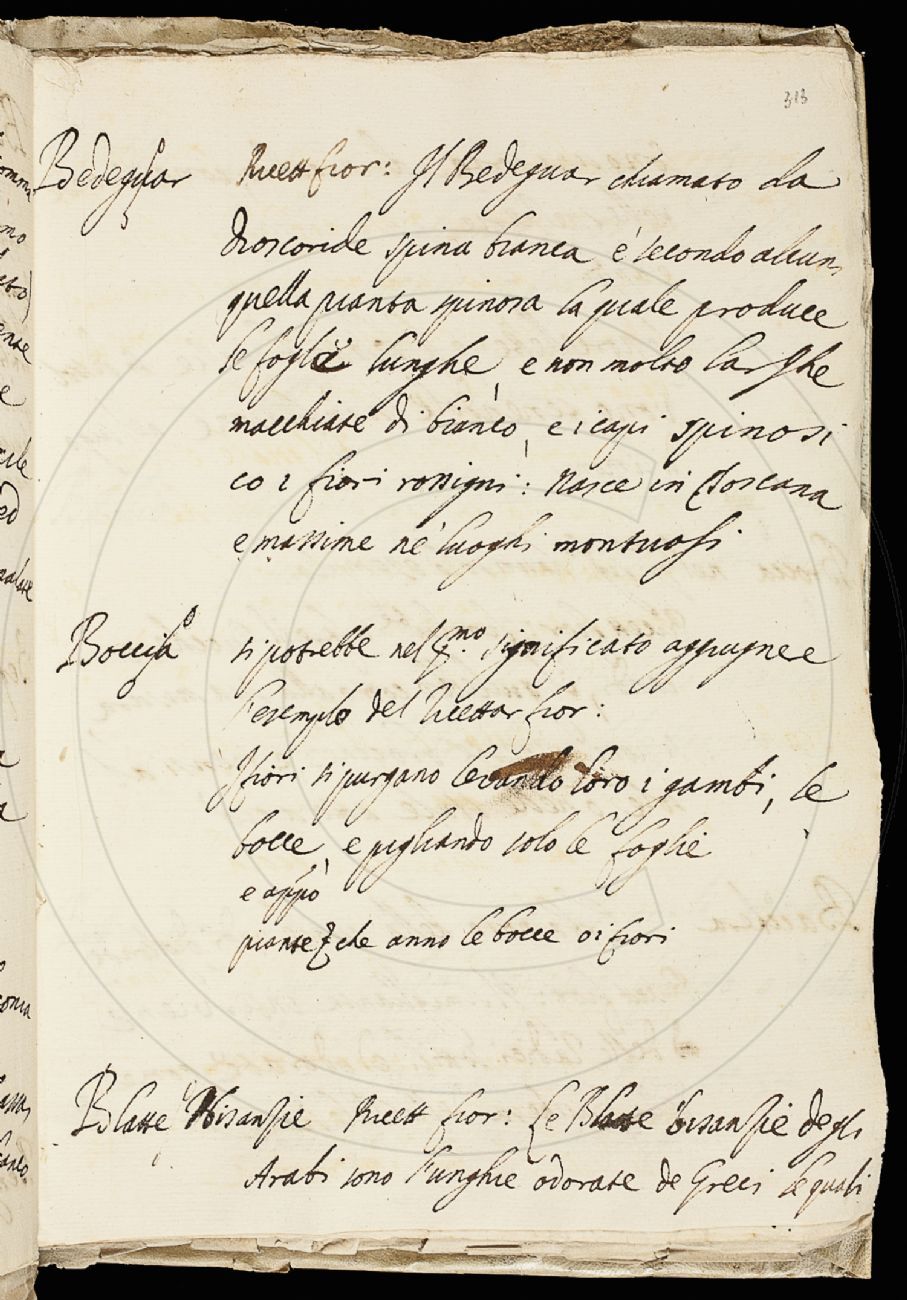 313
Bedeguar Ricett fior: Il Bedeguar chiamato da
Dioscoride spina bianca è secondo alcuni
quella pianta spinosa la quale produce
le foglie lunghe, e non molto larghe
macchiate di bianco, e i capi spinosi
co i fiori rossigni: Nasce in Toscana
e massime ne luoghi montuosi
Boccia si potrebbe nel pmo. significato aggiugnere
l'esemplo del Ricettar fior:
I fiori si purgano levando loro i gambi, le
bocce, e pigliando solo le foglie
e appò
piante che anno le bocce o i fiori
Blatte bisanzie Ricett fior: Le Blatte bisanzie degli
Arabi sono l'unghie odorate de Greci le quali